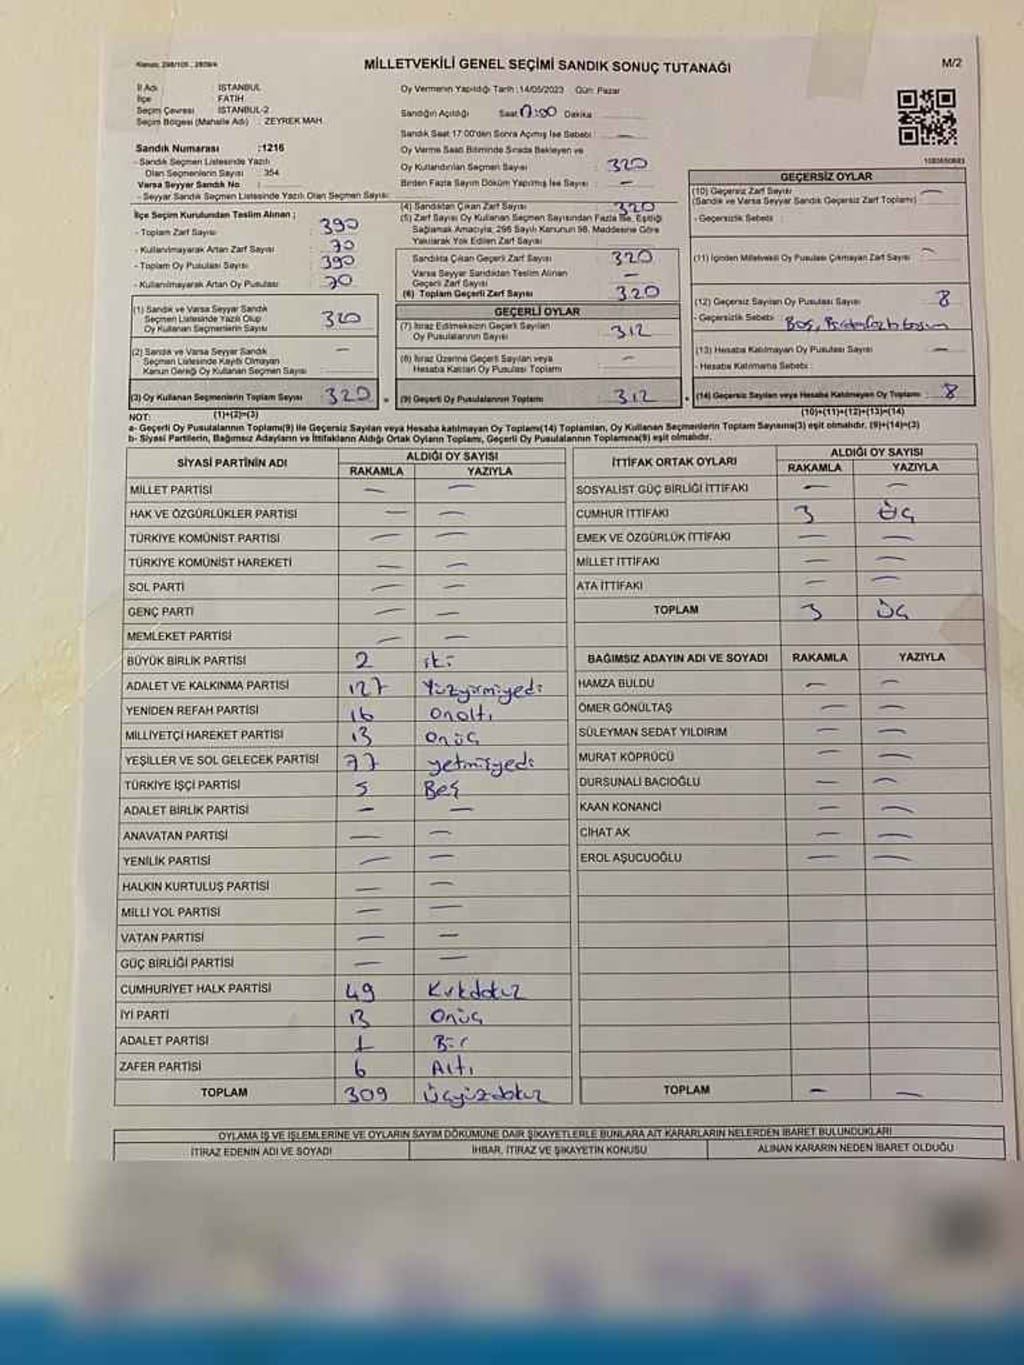 Kanun: 298/105, 2839/4
MİLLETVEKİLİ GENEL SEÇİMİ SANDIK SONUÇ TUTANAĞI
M/2
İl Adı : İSTANBUL
İlçe : FATİH
Seçim Çevresi : İSTANBUL-2
Seçim Bölgesi (Mahalle Adı) : ZEYREK MAH
Sandık Numarası :1216
- Sandık Seçmen Listesinde Yazılı
Olan Seçmenlerin Sayısı : 354
Varsa Seyyar Sandık No :
- Seyyar Sandık Seçmen Listesinde Yazılı Olan Seçmen Sayısı:
İlçe Seçim Kurulundan Teslim Alınan ;
- Toplam Zarf Sayısı : 390
- Kullanılmayarak Artan Zarf Sayısı : 70
- Toplam Oy Pusulası Sayısı : 390
- Kullanılmayarak Artan Oy Pusulası : 70
(1) Sandık ve Varsa Seyyar Sandık
Seçmen Listesinde Yazılı Olup
Oy Kullanan Seçmenlerin Sayısı : 320
(2) Sandık ve Varsa Seyyar Sandık
Seçmen Listesinde Kayıtlı Olmayan
Kanun Gereği Oy Kullanan Seçmen Sayısı : —
(3) Oy Kullanan Seçmenlerin Toplam Sayısı : 320
Oy Vermenin Yapıldığı Tarih :14/05/2023 Gün: Pazar
Sandığın Açıldığı Saat 17:00 Dakika
Sandık Saat 17:00'den Sonra Açılmış İse Sebebi : —
Oy Verme Saati Bitiminde Sırada Bekleyen ve
Oy Kullandırılan Seçmen Sayısı : 320
Birden Fazla Sayım Döküm Yapılmış İse Sayısı : —
(4) Sandıktan Çıkan Zarf Sayısı : 320
(5) Zarf Sayısı Oy Kullanan Seçmen Sayısından Fazla İse, Eşitliği
Sağlamak Amacıyla; 298 Sayılı Kanunun 98. Maddesine Göre
Yakılarak Yok Edilen Zarf Sayısı :
Sandıkta Çıkan Geçerli Zarf Sayısı : 320
Varsa Seyyar Sandıktan Teslim Alınan
Geçerli Zarf Sayısı : —
(6) Toplam Geçerli Zarf Sayısı : 320
GEÇERLİ OYLAR
(7) İtiraz Edilmeksizin Geçerli Sayılan
Oy Pusulalarının Sayısı : 312
(8) İtiraz Üzerine Geçerli Sayılan veya
Hesaba Katılan Oy Pusulası Toplamı : —
(9) Geçerli Oy Pusulalarının Toplamı : 312
1083650883
GEÇERSİZ OYLAR
(10) Geçersiz Zarf Sayısı : —
(Sandık ve Varsa Seyyar Sandık Geçersiz Zarf Toplamı)
- Geçersizlik Sebebi :
(11) İçinden Milletvekili Oy Pusulası Çıkmayan Zarf Sayısı : —
(12) Geçersiz Sayılan Oy Pusulası Sayısı : 8
- Geçersizlik Sebebi : Boş,
(13) Hesaba Katılmayan Oy Pusulası Sayısı : —
- Hesaba Katılmama Sebebi :
(14) Geçersiz Sayılan veya Hesaba Katılmayan Oy Toplamı : 8
NOT: (1)+(2)=(3) (10)+(11)+(12)+(13)=(14)
a- Geçerli Oy Pusulalarının Toplamı(9) ile Geçersiz Sayılan veya Hesaba katılmayan Oy Toplamı(14) Toplamları, Oy Kullanan Seçmenlerin Toplam Sayısına(3) eşit olmalıdır. (9)+(14)=(3)
b- Siyasi Partilerin, Bağımsız Adayların ve İttifakların Aldığı Ortak Oyların Toplamı, Geçerli Oy Pusulalarının Toplamına(9) eşit olmalıdır.
SİYASİ PARTİNİN ADI ALDIĞI OY SAYISI
RAKAMLA YAZIYLA
MİLLET PARTİSİ — —
HAK VE ÖZGÜRLÜKLER PARTİSİ — —
TÜRKİYE KOMÜNİST PARTİSİ — —
TÜRKİYE KOMÜNİST HAREKETİ — —
SOL PARTİ — —
GENÇ PARTİ — —
MEMLEKET PARTİSİ — —
BÜYÜK BİRLİK PARTİSİ 2 iki
ADALET VE KALKINMA PARTİSİ 127 Yüzyirmiyedi
YENİDEN REFAH PARTİSİ 16 Onaltı
MİLLİYETÇİ HAREKET PARTİSİ 13 Onüç
YEŞİLLER VE SOL GELECEK PARTİSİ 77 yetmişyedi
TÜRKİYE İŞÇİ PARTİSİ 5 Beş
ADALET BİRLİK PARTİSİ — —
ANAVATAN PARTİSİ — —
YENİLİK PARTİSİ — —
HALKIN KURTULUŞ PARTİSİ — —
MİLLİ YOL PARTİSİ — —
VATAN PARTİSİ — —
GÜÇ BİRLİĞİ PARTİSİ — —
CUMHURİYET HALK PARTİSİ 49 Kırkdokuz
İYİ PARTİ 13 Onüç
ADALET PARTİSİ 1 Bir
ZAFER PARTİSİ 6 Altı
TOPLAM 309 Üçyüzdokuz
İTTİFAK ORTAK OYLARI ALDIĞI OY SAYISI
RAKAMLA YAZIYLA
SOSYALİST GÜÇ BİRLİĞİ İTTİFAKI — —
CUMHUR İTTİFAKI 3 Üç
EMEK VE ÖZGÜRLÜK İTTİFAKI — —
MİLLET İTTİFAKI — —
ATA İTTİFAKI — —
TOPLAM 3 Üç
BAĞIMSIZ ADAYIN ADI VE SOYADI RAKAMLA YAZIYLA
HAMZA BULDU — —
ÖMER GÖNÜLTAŞ — —
SÜLEYMAN SEDAT YILDIRIM — —
MURAT KÖPRÜCÜ — —
DURSUNALİ BACIOĞLU — —
KAAN KONANCİ — —
CİHAT AK — —
EROL AŞUCUOĞLU — —
TOPLAM — —
OYLAMA İŞ VE İŞLEMLERİNE VE OYLARIN SAYIM DÖKÜMÜNE DAİR ŞİKAYETLERLE BUNLARA AİT KARARLARIN NELERDEN İBARET BULUNDUKLARI
İTİRAZ EDENİN ADI VE SOYADI İHBAR, İTİRAZ VE ŞİKAYETİN KONUSU ALINAN KARARIN NEDEN İBARET OLDUĞU